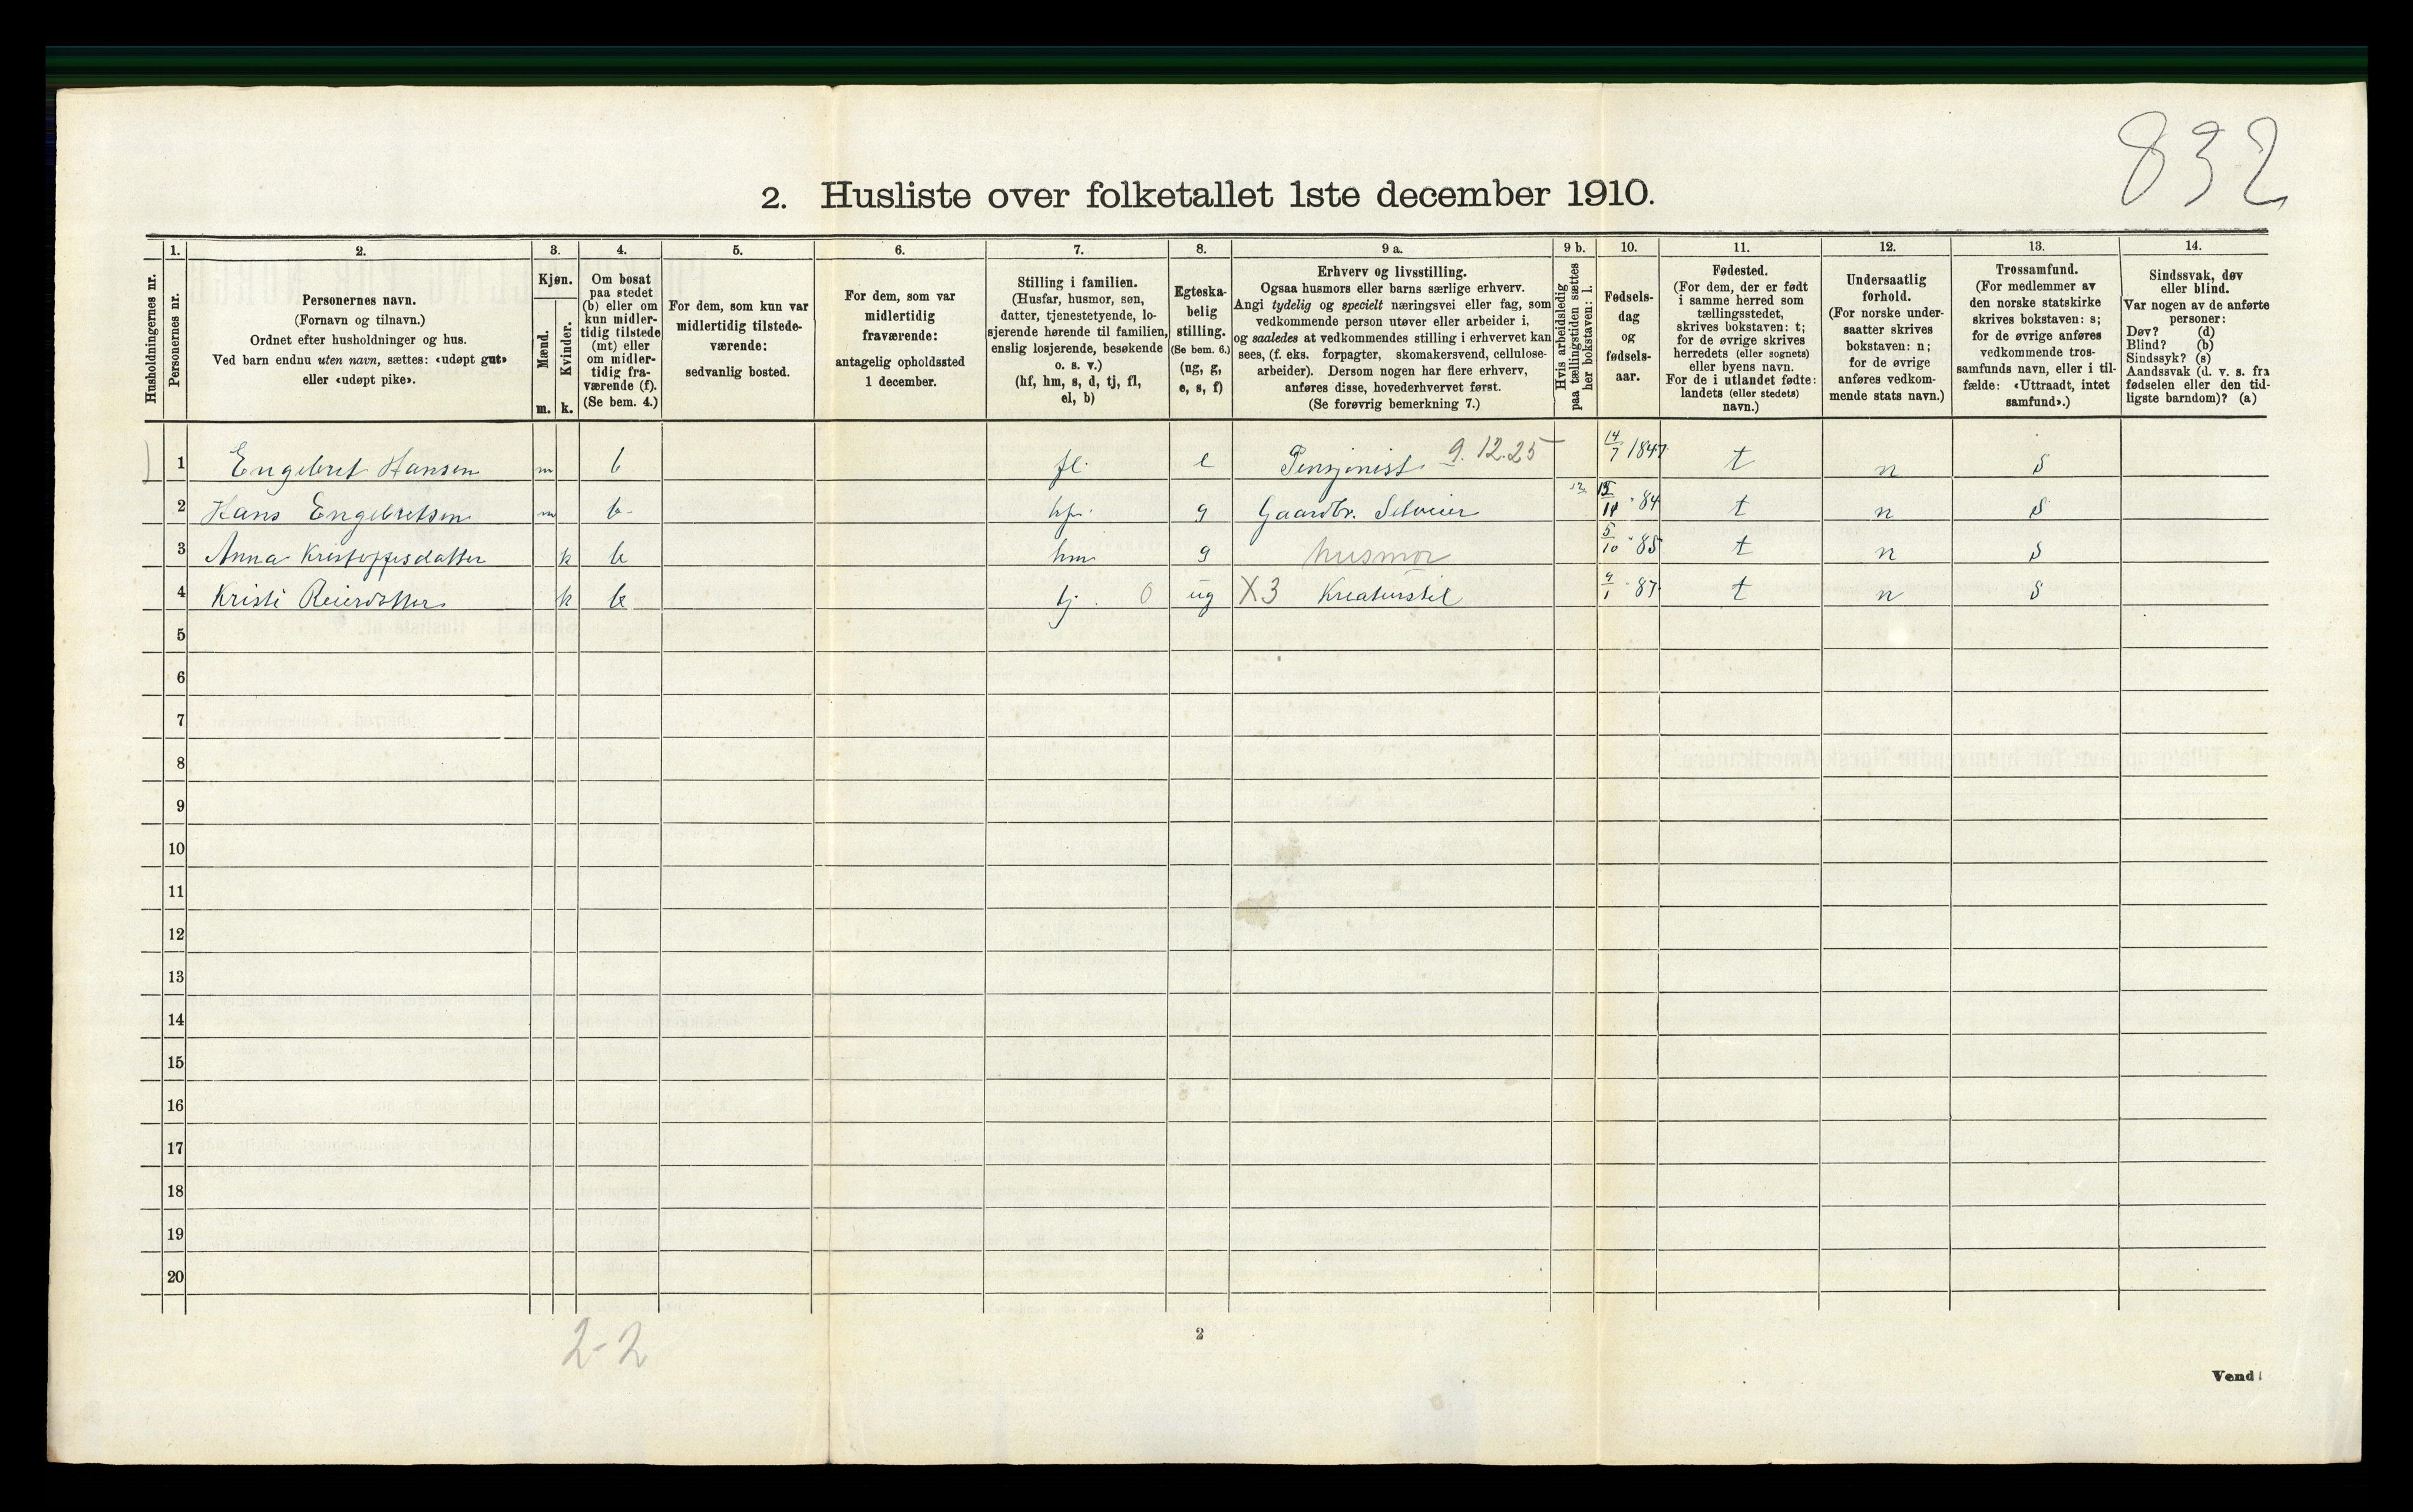 832
2. Husliste over folketallet 1ste december 1910.
Husholdningernes nr.
1.
Personernes nr.
2.
Personernes navn.
(Fornavn og tilnavn.)
Ordnet efter husholdninger og hus.
Ved barn endnu uten navn, sættes: «udøpt gut»
eller «udøpt pike».
3.
Kjøn.
Mænd.
Kvinder.
m. k.
4.
Om bosat
paa stedet
(b) eller om
kun midler-
tidig tilstede
(mt) eller
om midler-
tidig fra-
værende (f).
(Se bem. 4.)
5.
For dem, som kun var
midlertidig tilstede-
værende:
sedvanlig bosted.
6.
For dem, som var
midlertidig
fraværende:
antagelig opholdssted
1 december.
7.
Stilling i familien.
(Husfar, husmor, søn,
datter, tjenestetyende, lo-
sjerende hørende til familien,
enslig losjerende, besøkende
o. s. v.)
(hf, hm, s, d, tj, fl,
el, b)
8.
Egteska-
belig
stilling.
(Se bem. 6.)
(ug, g,
e, s, f)
9 a.
Erhverv og livsstilling.
Ogsaa husmors eller barns særlige erhverv.
Angi tydelig og specielt næringsvei eller fag, som
vedkommende person utøver eller arbeider i,
og saaledes at vedkommendes stilling i erhvervet kan
sees, (f. eks. forpagter, skomakersvend, cellulose-
arbeider). Dersom nogen har flere erhverv,
anføres disse, hovederhvervet først.
(Se forøvrig bemerkning 7.)
9 b.
Hvis arbeidsledig
paa tællingstiden sættes
her bokstaven: l.
10.
Fødsels-
dag
og
fødsels-
aar.
11.
Fødested.
(For dem, der er født
i samme herred som
tællingsstedet,
skrives bokstaven: t;
for de øvrige skrives
herredets (eller sognets)
eller byens navn.
For de i utlandet fødte:
landets (eller stedets)
navn.)
12.
Undersaatlig
forhold.
(For norske under-
saatter skrives
bokstaven: n;
for de øvrige
anføres vedkom-
mende stats navn.)
13.
Trossamfund.
(For medlemmer av
den norske statskirke
skrives bokstaven: s;
for de øvrige anføres
vedkommende tros-
samfunds navn, eller i til-
fælde: «Uttraadt, intet
samfund».)
14.
Sindssvak, døv
eller blind.
Var nogen av de anførte
personer:
Døv? (d)
Blind? (b)
Sindssyk? (s)
Aandssvak (d. v. s. fra
fødselen eller den tid-
ligste barndom)? (a)
1 Engebret Hansen m b fl. e Pensjonist 9.12.25 14/7 1847 t n s
2 Hans Engebretsen m b g Gaardbr. Selveier 84 t n s
3 Anna Kristoffesdatter k b hm g husmor 5/10 85 t n s
4 Kristi Reiersdatter k b tj. 0 ug X3 Kreaturstel 9/1 87 t n s
5
6
7
8
9
10
11
12
13
14
15
16
17
18
19
20
2-2
2
Vend!